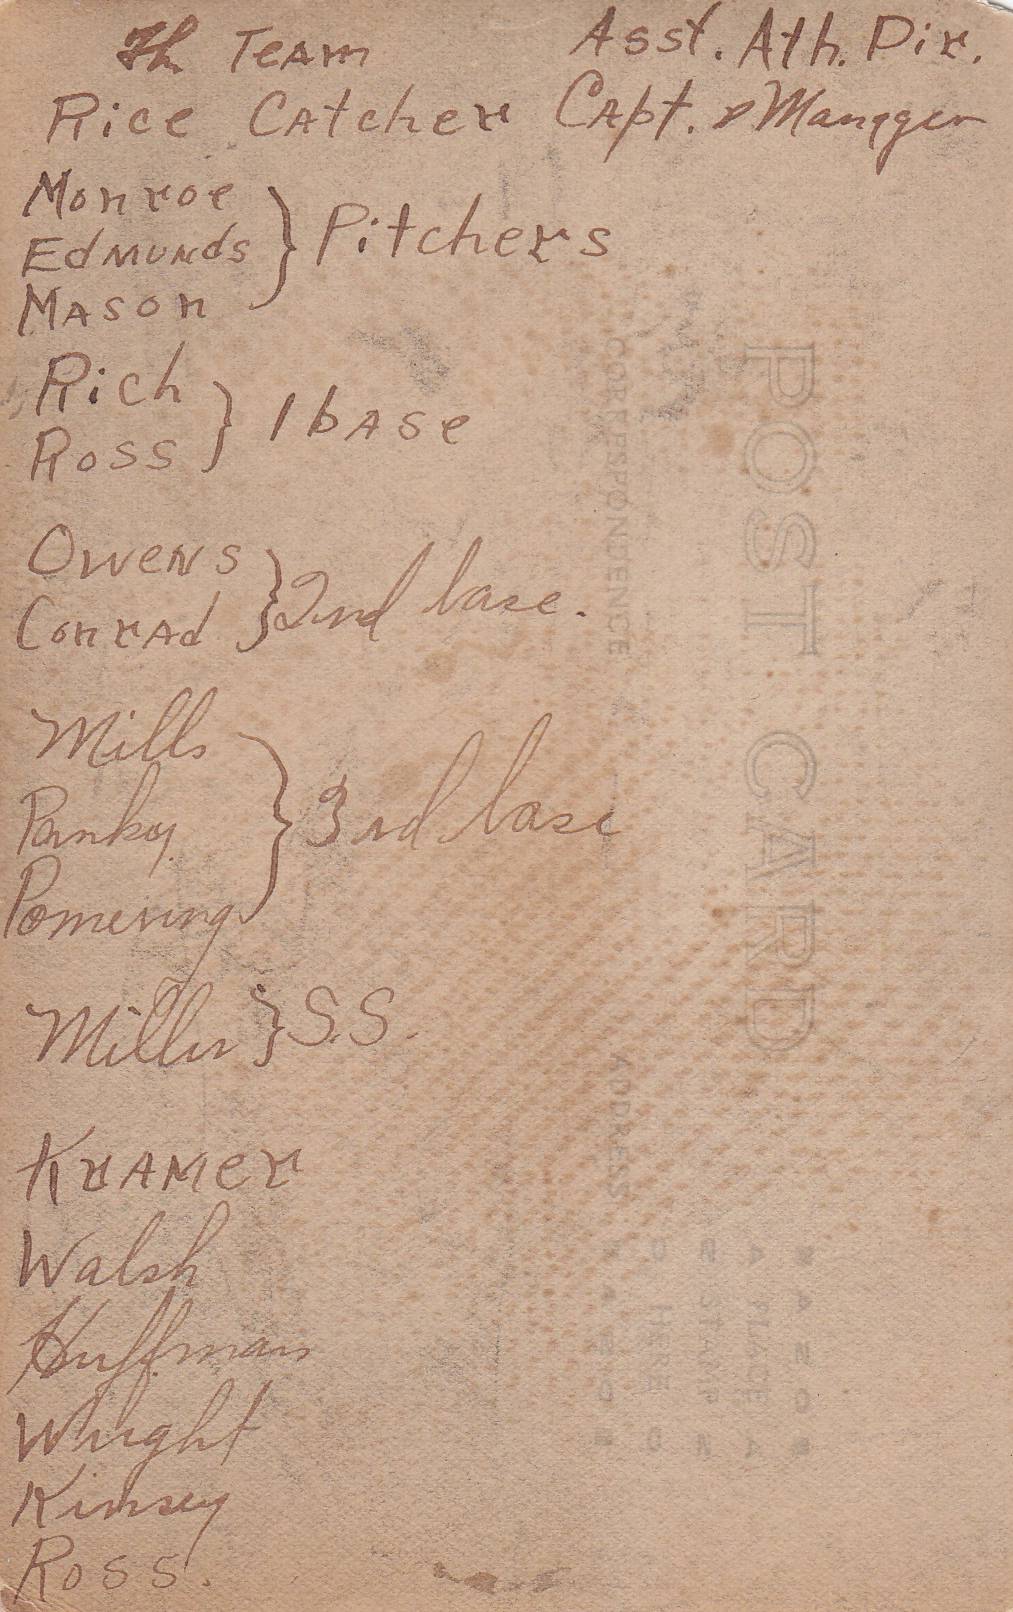 The Team Asst. Ath. Dir.
Rice Catcher Capt. & Manager
Monroe
Edmunds } Pitchers
Mason
Rich
Ross } 1 base
Owens
Conrad } 2nd base.
Mills
Panky } 3rd base
Pomering
Miller } S.S.
Kramer
Walsh
Huffman
Whright
Kinsey
Ross.
POST CARD
CORRESPONDENCE
ADDRESS
PLACE
STAMP
HERE